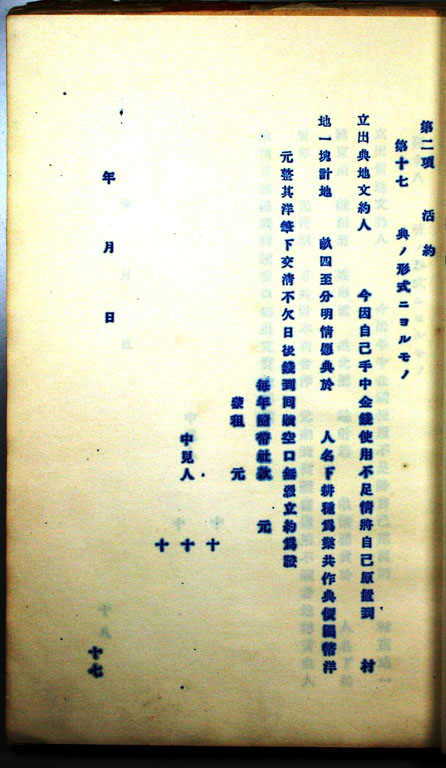 第二項 活約
第十七 典ノ形式ニヨルモノ
立出典地文約人 今因自己手中金錢使用不足情將自己原置到 村
地一塊計地 畝四至分明情愿典於 人名下耕種爲業共作典價國幣洋
元整其洋筆下交清不欠日後錢到回贖空口無憑立約爲證
每年隨帶社款 元
發租 元
十
中見人 十
十
年 月 日
十七